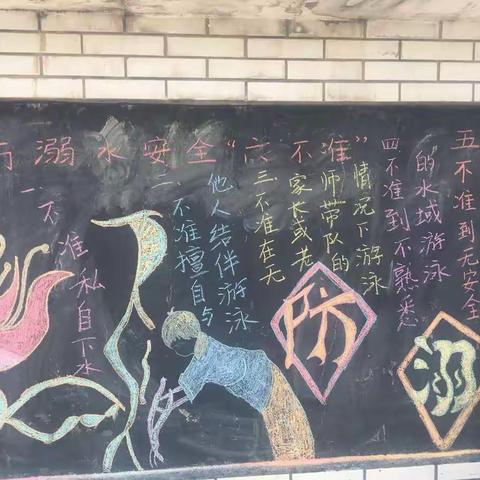 防溺水安全“六不准”
一、不
准私自下水
二、不准擅自与
他人结伴游泳
三、不准在无
家长或老
师带队的
情况下游泳
四不准到不熟悉
的水域游泳
五不准到无安全
防
溺